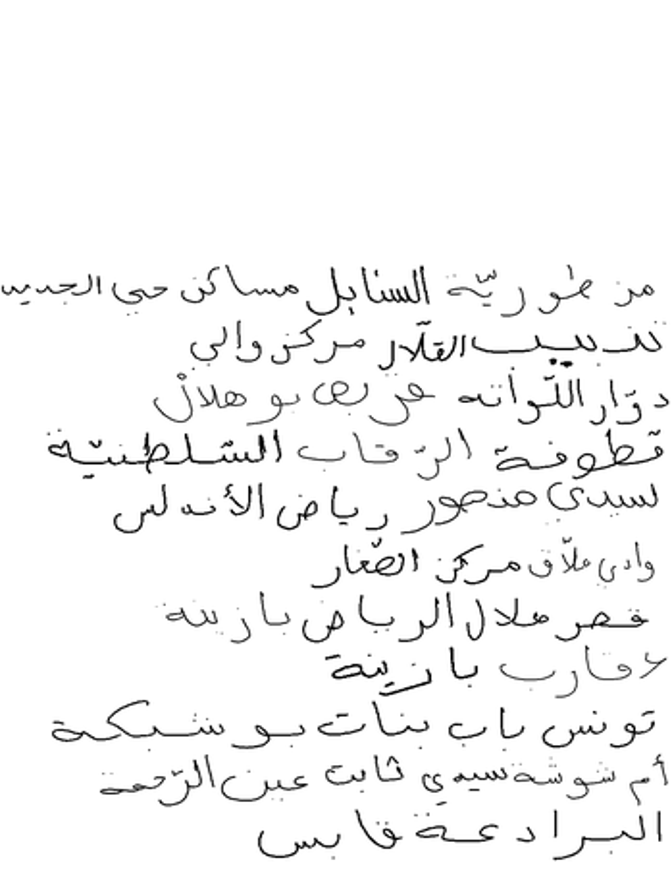 منزطورية السنابل مساكن حي الجديد
تذبيب القلّال مركز والي
دوّار اللّواتة عريض بوهلال
قطوفة الرّقاب السّلطنيّة
لسيدي منصور رياض الأندلس
وادي ملّاق مركز الصّغار
قصر هلال الرياض بازينة
عقارب بازينة
تونس باب بنات بوشبكة
أم شوشة سيدي ثابت عين الرّحمة
البرادعة قابس